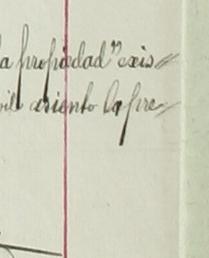 la propiedad" exis=
vil asiento la pre=